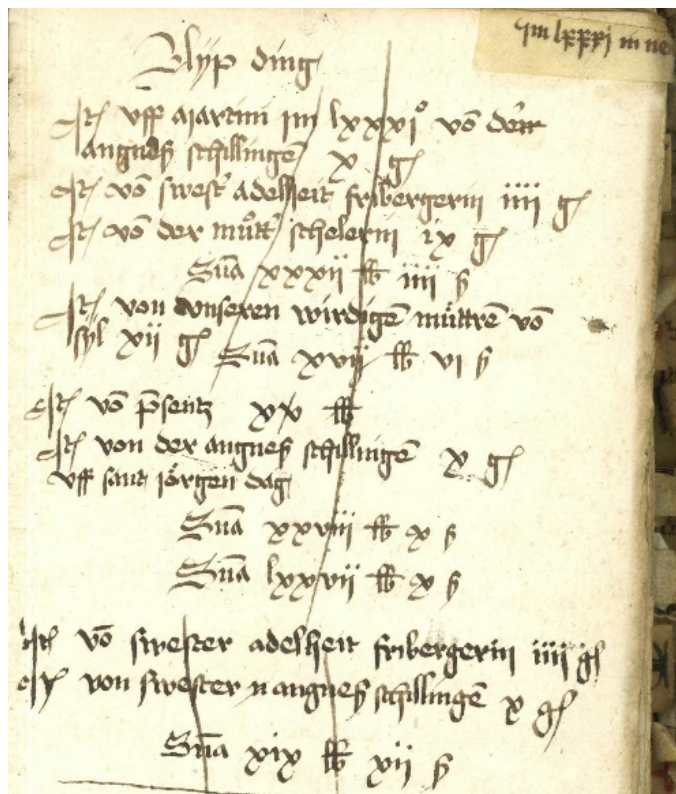 im lxxxi m ne
Blyp ding
Itē uff martini im lxxxi° vō der
angneß schillingē x g
Itē vō swest' adelheit fribergerin iiii g
Itē vō der můtt' schelerin ix g
Sūa xxxii lb iiii ß
Itē von vnseren wirdigē můttrē vō
syl xii g Sūa xvii lb vi ß
Itē vō p̄sentz xx lb
Itē von der angneß schillingē x g
uff sant jörgen dag
Sūa xxviii lb x ß
Sūa lxxvii lb x ß
Itē vō swester adelheit fribergerin iiii g
Itē von swester angneß schillingē x g
Sūa xix lb xii ß